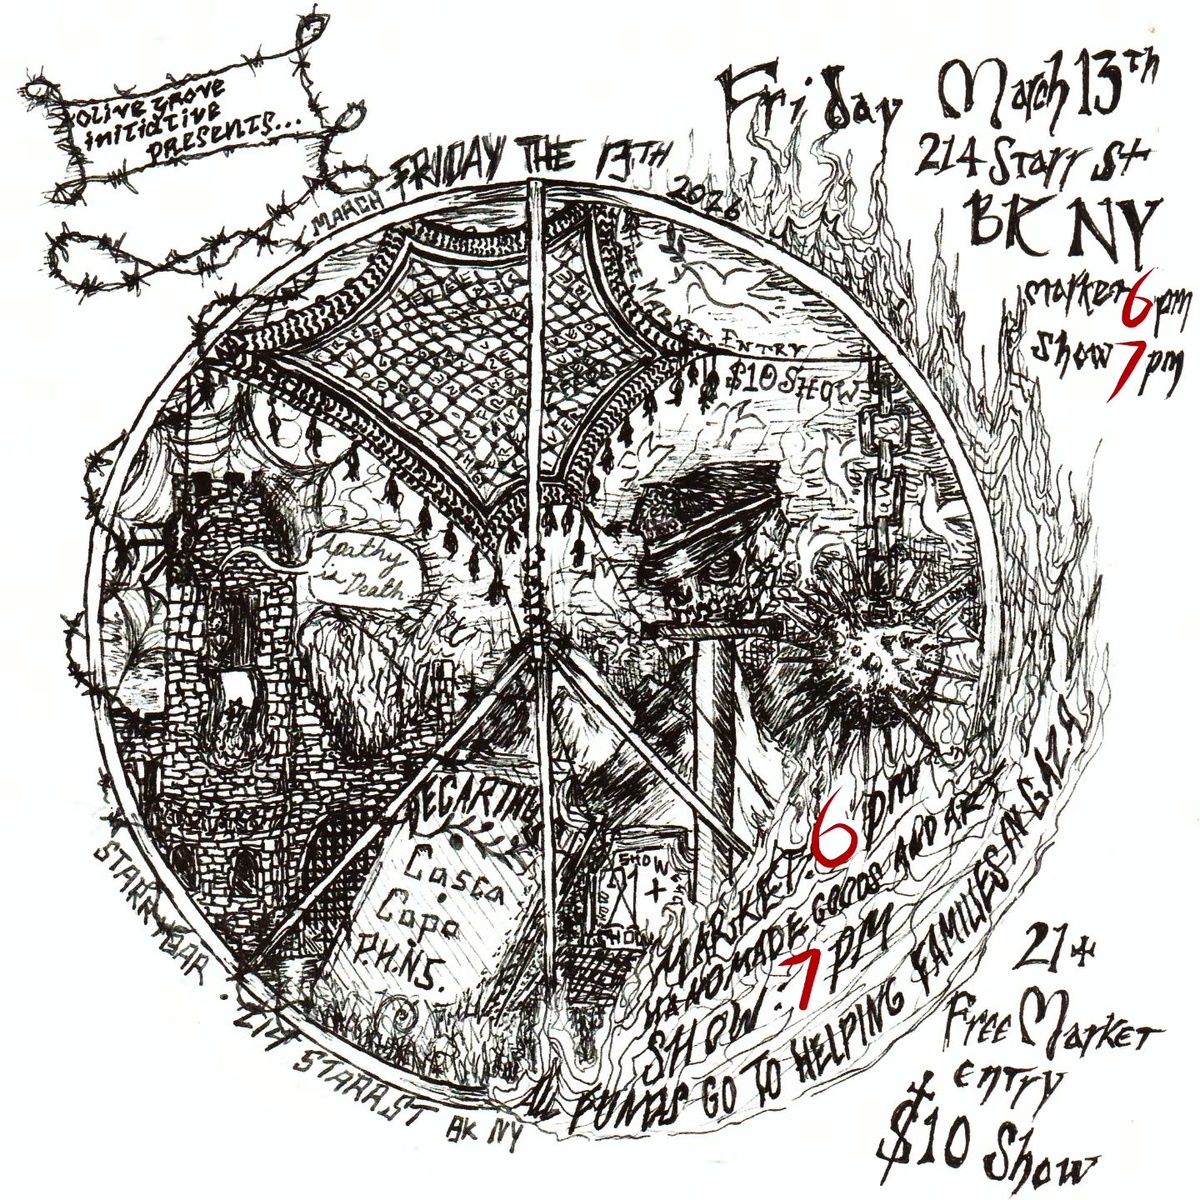 olive grove
initiative
PRESENTS...
Friday March 13th
214 Starr St
BK NY
Market 6pm
Show 7pm
MARCH FRIDAY THE 13TH 2026
ENTRY
$10 SHOW
Apathy
is Death
Casca
Capo
P.H.N.S.
SHOW
21+
SHOW
MARKET: 6 pm
HANDMADE GOODS AND ART
SHOW: 7 PM
ALL FUNDS GO TO HELPING FAMILIES IN GAZA
STARR BAR. 214 STARR ST BK NY
21+
Free Market
entry
$10 Show